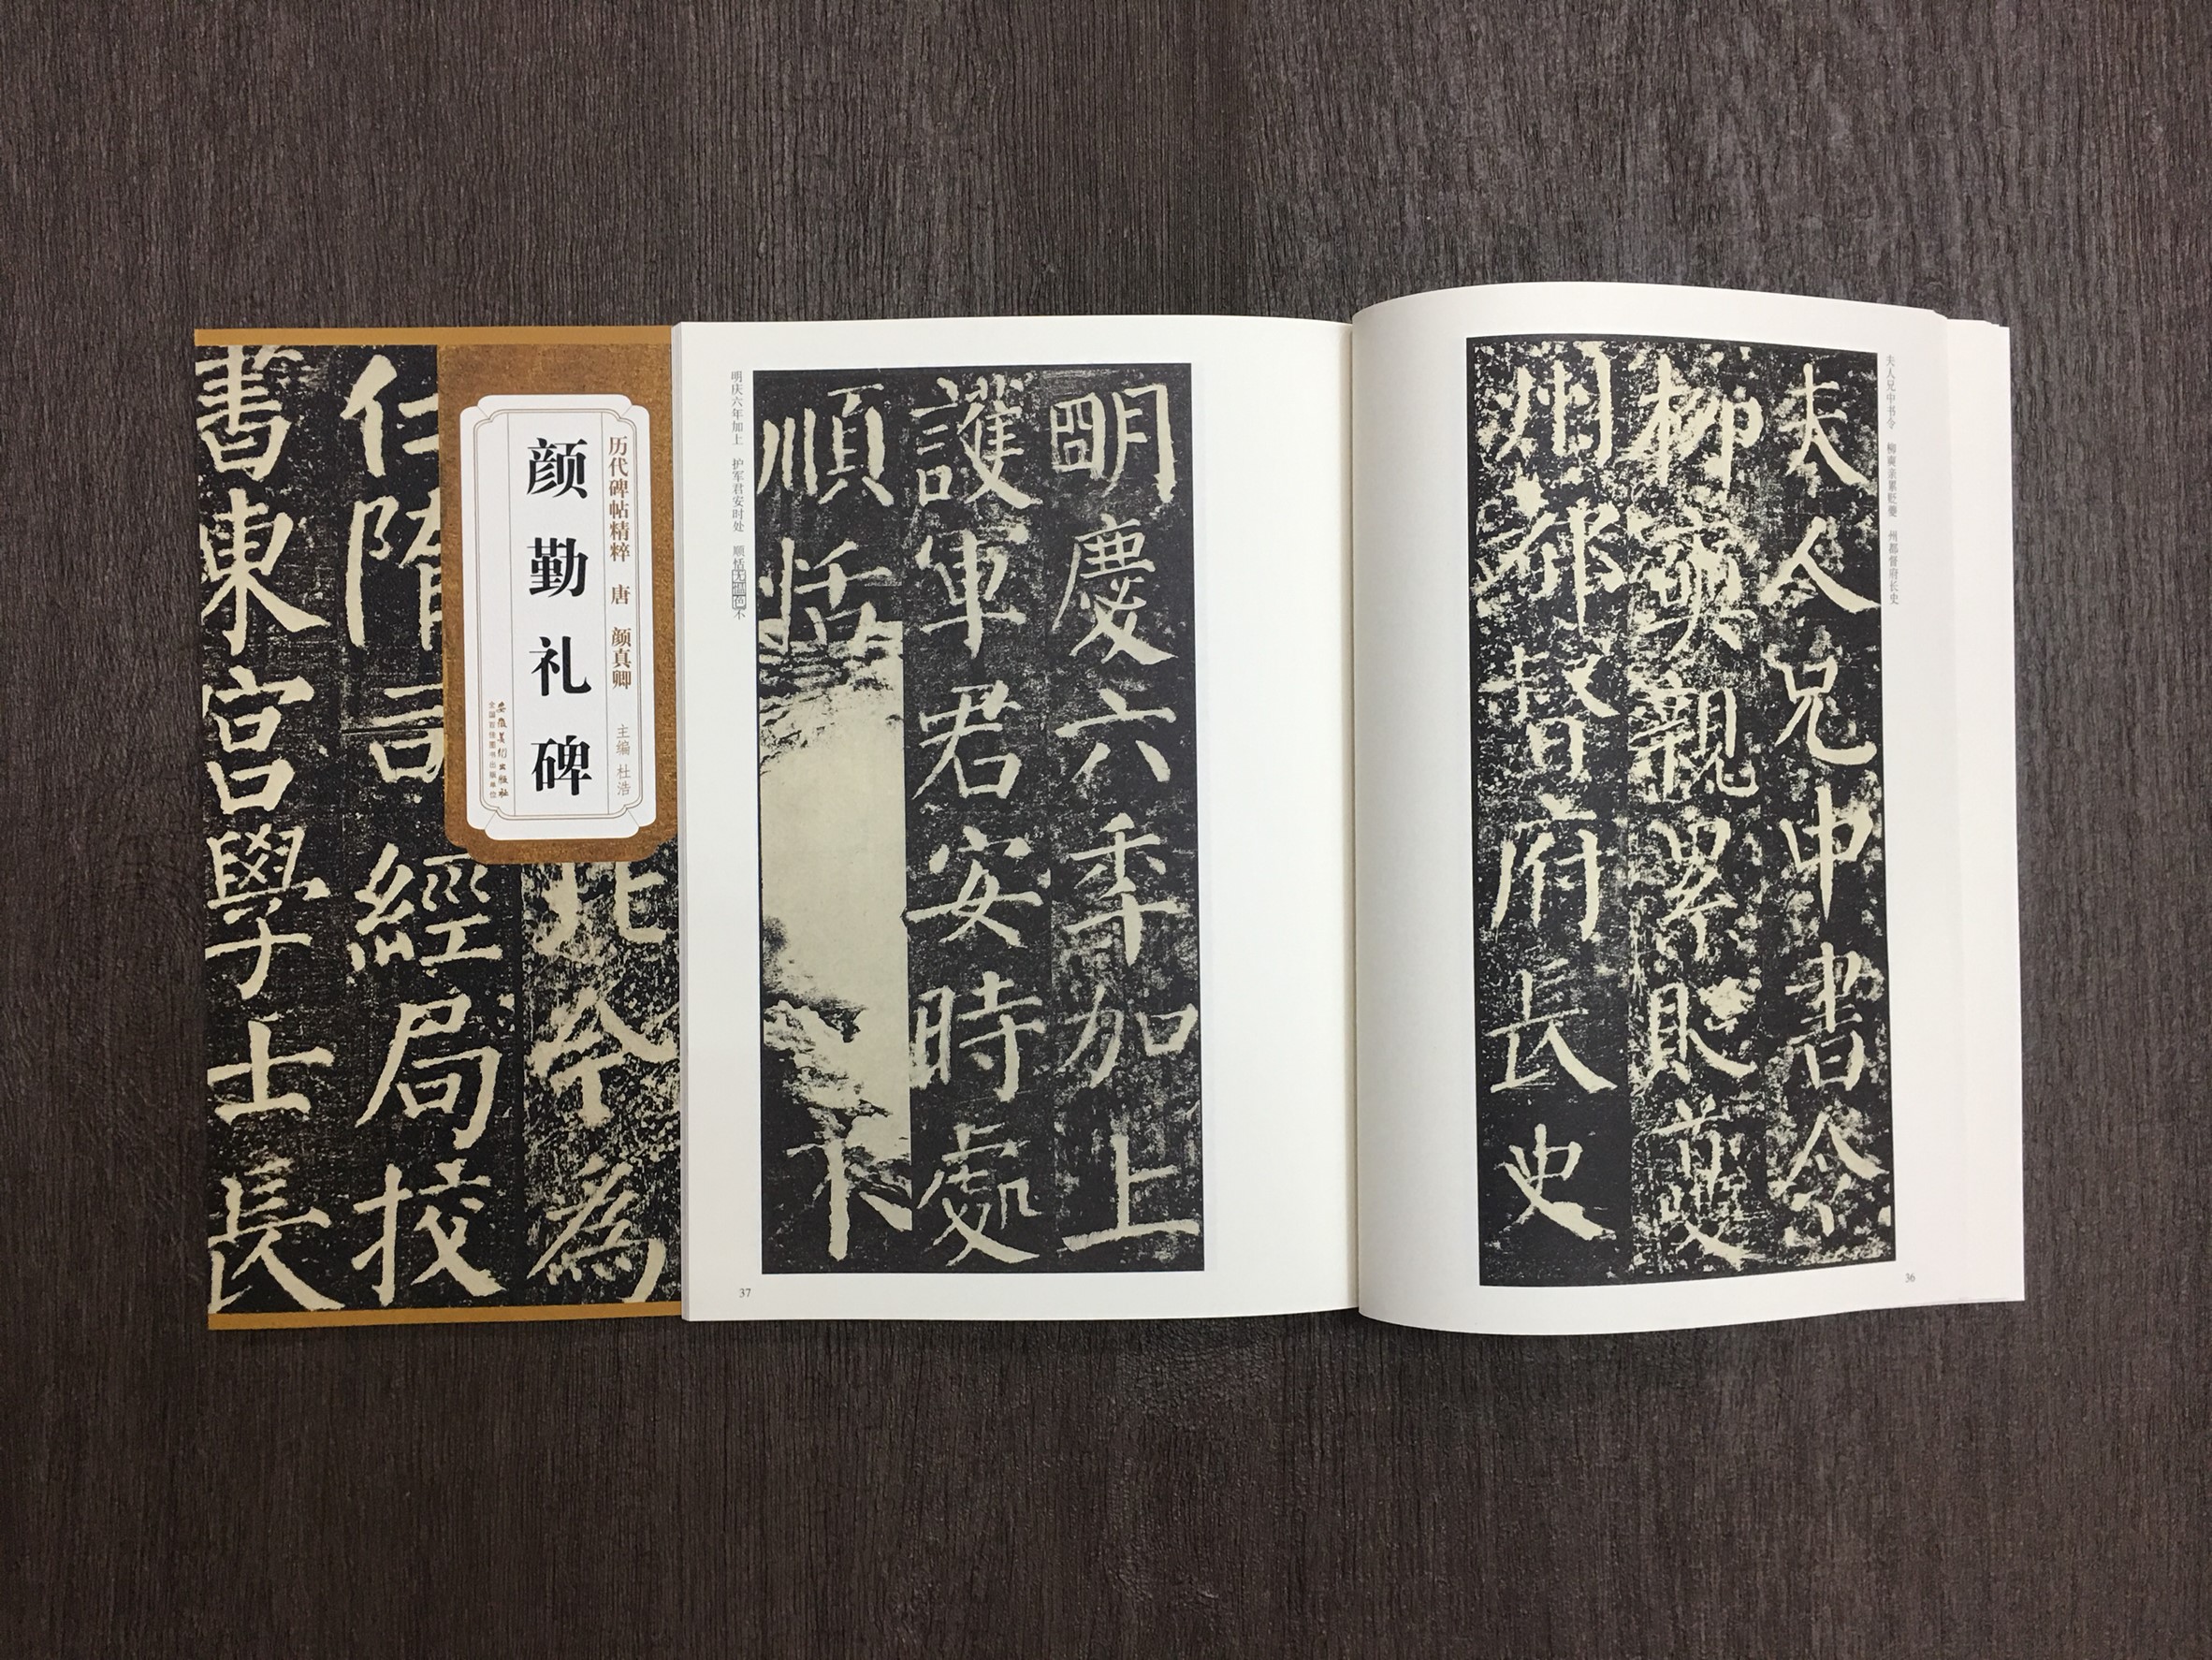 历代碑帖精粹 唐 颜真卿 主编 杜浩
颜勤礼碑
安徽美术出版社
全国百佳图书出版单位
北令為
仁隋司經局校
書東宮學士長
夫人兄中书令 柳奭亲累贬夔 州都督府长史
夫人兄中書令
柳奭親累貶夔
州都督府長史
36
明慶六年加上
護軍君安時處
順恬不
明庆六年加上 护军君安时处 顺恬无愠色不
37